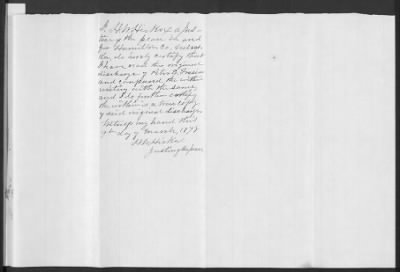 I, H. W. Hicks a Jus-
tice of the peace in and
for Hamilton Co.
do hereby certify that
I have read the original
discharge of
and compared the within
writing with the same
and I do further certify
the within is a true copy
of said original discharge
Witness my hand this
day of March, 187
H W Hicks
Justice of peace